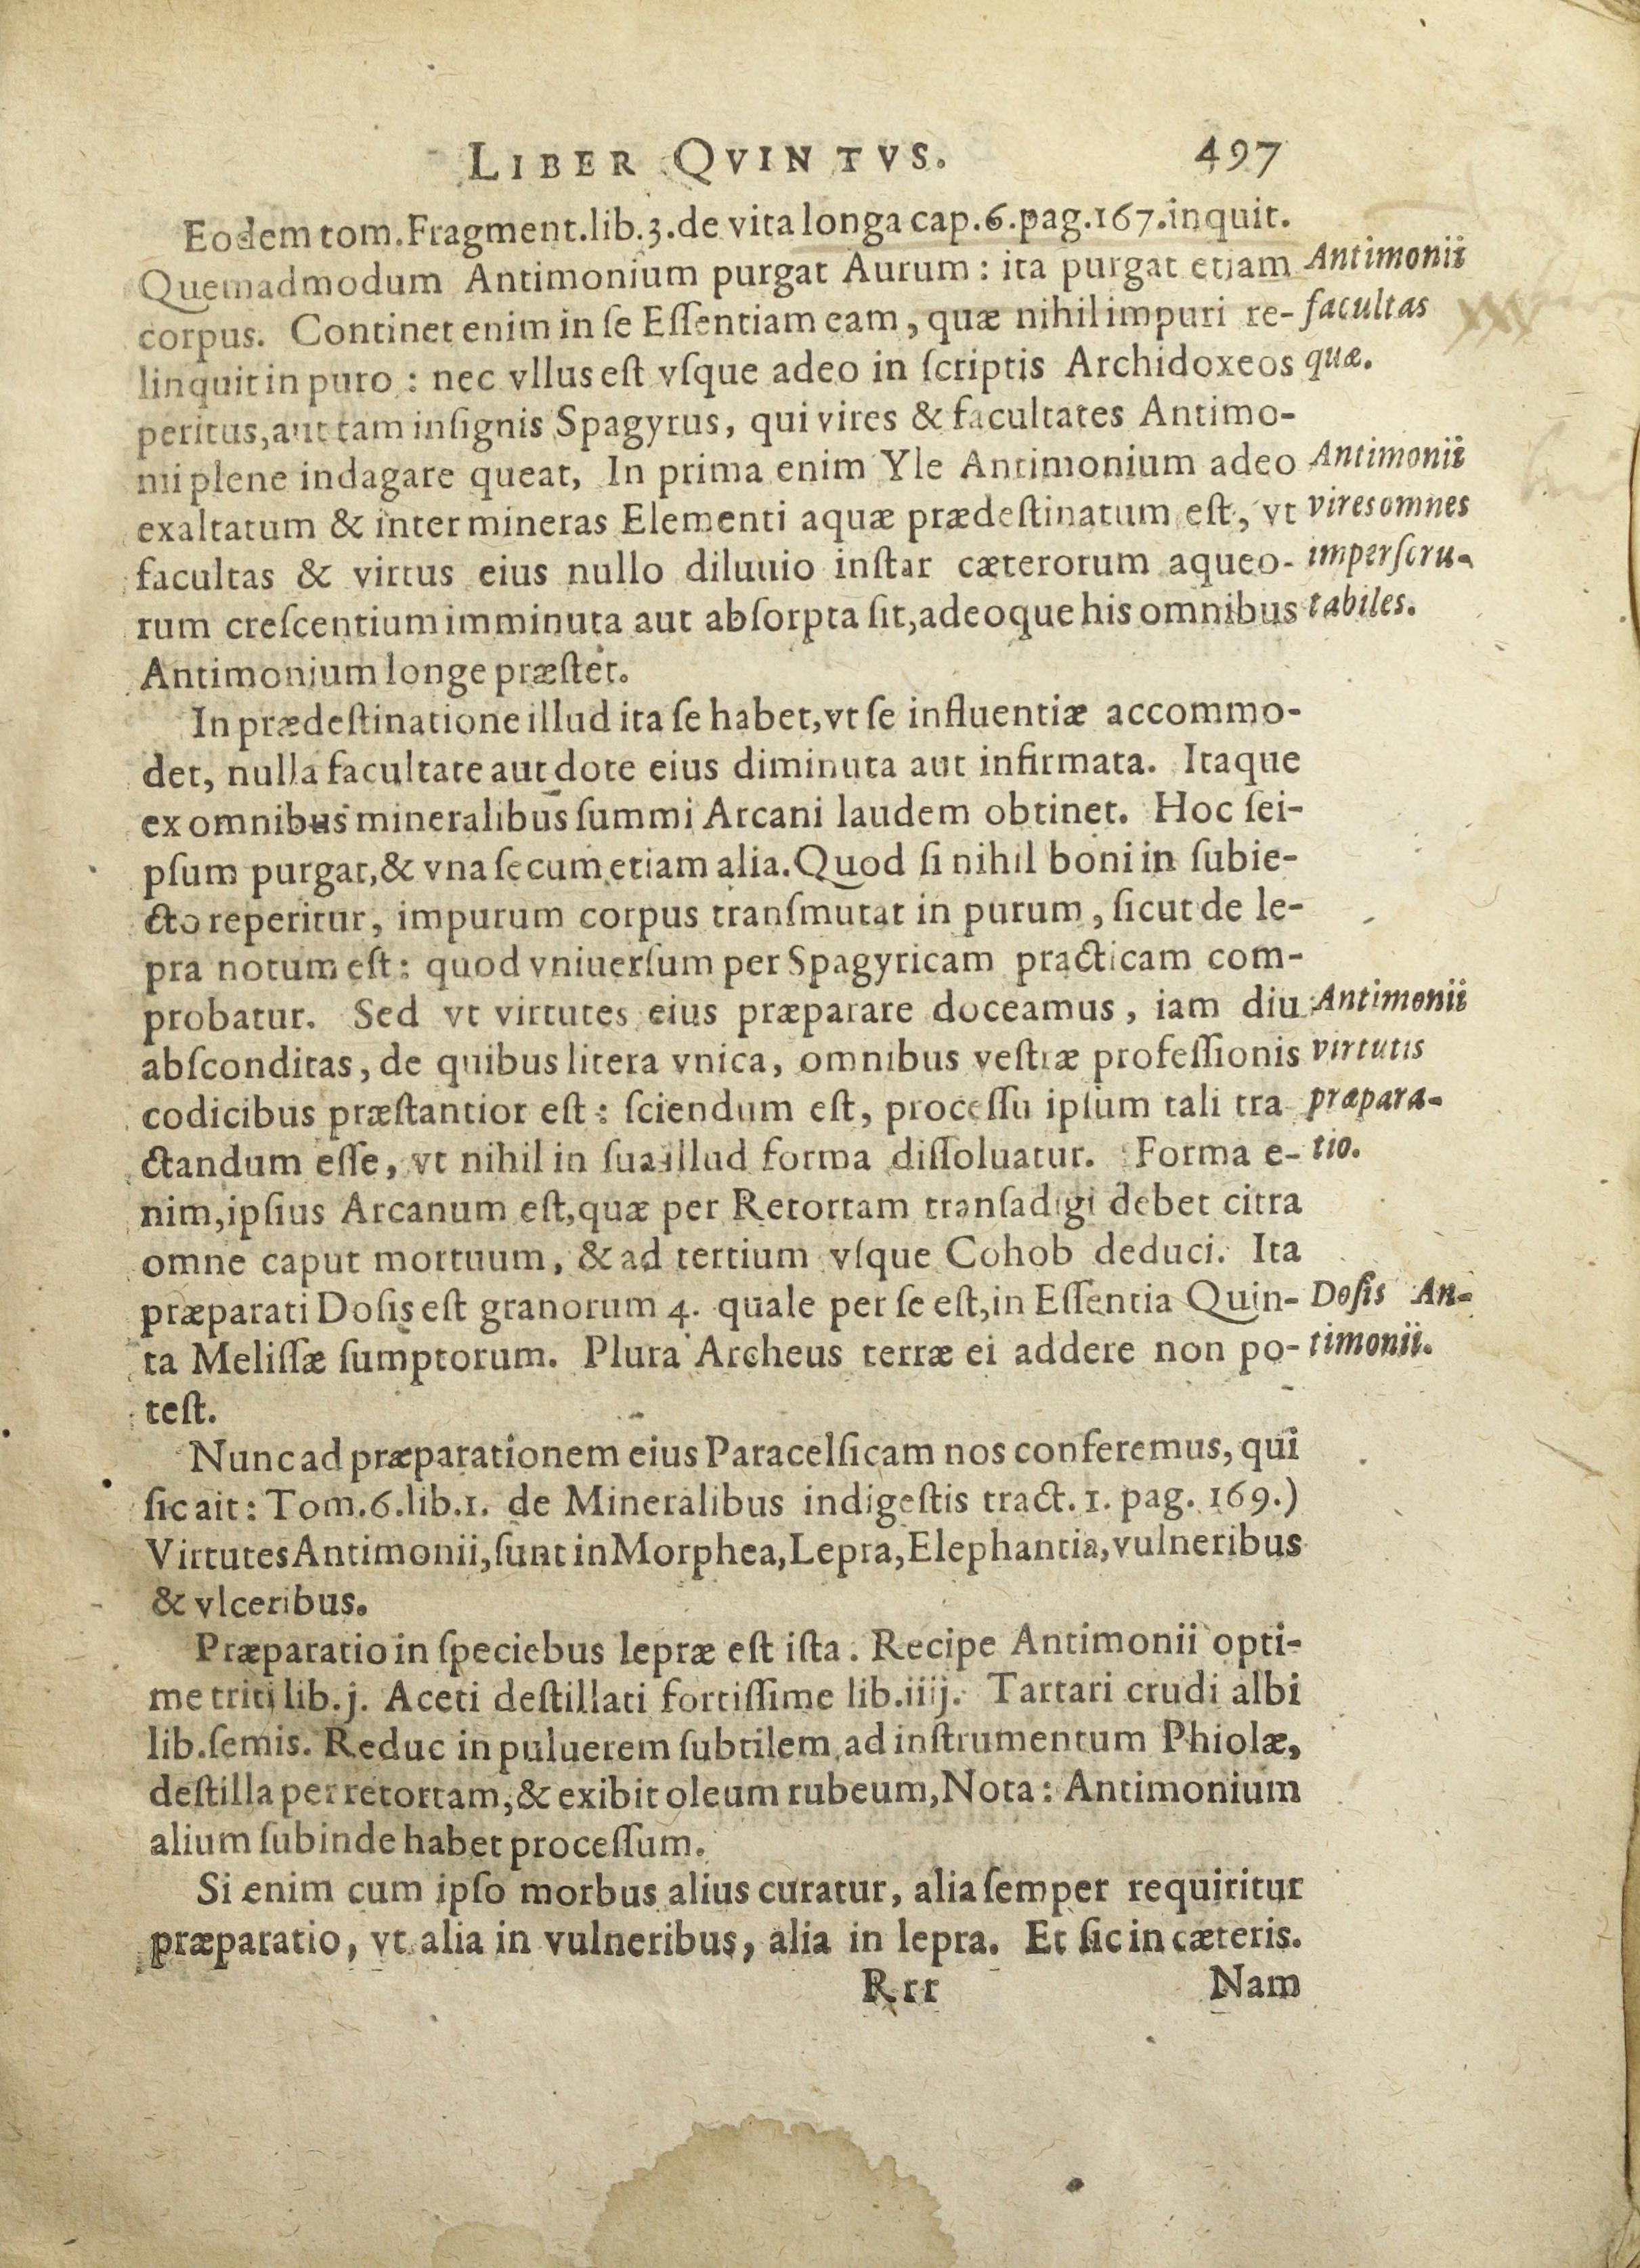 LIBER QVINTVS. 497
Eodem tom. Fragment. lib. 3. de vita longa cap. 6. pag. 167. inquit.
Quemadmodum Antimonium purgat Aurum: ita purgat etiam
corpus. Continet enim in ſe Eſſentiam eam, quæ nihil impuri re-
linquit in puro: nec vllus eſt vſque adeo in ſcriptis Archidoxeos
peritus, aut tam inſignis Spagyrus, qui vires & facultates Antimo-
nii plene indagare queat, In prima enim Yle Antimonium adeo
exaltatum & inter mineras Elementi aquæ prædeſtinatum eſt, vt
facultas & virtus eius nullo diluuio inſtar cæterorum aqueo-
rum creſcentium imminuta aut abſorpta ſit, adeoque his omnibus
Antimonium longe præſtet.
Antimonii
facultas
quæ.
Antimonii
vires omnes
imperſcru-
tabiles.
In prædeſtinatione illud ita ſe habet, vt ſe influentiæ accommo-
det, nulla facultate aut dote eius diminuta aut infirmata. Itaque
ex omnibus mineralibus ſummi Arcani laudem obtinet. Hoc ſei-
pſum purgat, & vna ſecum etiam alia. Quod ſi nihil boni in ſubie-
cto reperitur, impurum corpus tranſmutat in purum, ſicut de le-
pra notum eſt: quod vniuerſum per Spagyricam practicam com-
probatur. Sed vt virtutes eius præparare doceamus, iam diu
abſconditas, de quibus litera vnica, omnibus veſtræ profeſſionis
codicibus præſtantior eſt: ſciendum eſt, proceſſu ipſum tali tra
ctandum eſſe, vt nihil in ſua illud forma diſſoluatur. Forma e-
nim, ipſius Arcanum eſt, quæ per Retortam transadigi debet citra
omne caput mortuum, & ad tertium vſque Cohob deduci. Ita
præparati Doſis eſt granorum 4. quale per ſe eſt, in Eſſentia Quin-
ta Meliſſæ ſumptorum. Plura Archeus terræ ei addere non po-
teſt.
Antimonii
virtutis
præpara-
tio.
Doſis An-
timonii.
Nunc ad præparationem eius Paracelſicam nos conferemus, qui
ſic ait: Tom. 6. lib. 1. de Mineralibus indigeſtis tract. 1. pag. 169.)
Virtutes Antimonii, ſunt in Morphea, Lepra, Elephantia, vulneribus
& vlceribus.
Præparatio in ſpeciebus lepræ eſt iſta. Recipe Antimonii opti-
me triti lib. j. Aceti deſtillati fortiſſime lib. iiij. Tartari crudi albi
lib. ſemis. Reduc in puluerem ſubtilem ad inſtrumentum Phiolæ,
deſtilla per retortam, & exibit oleum rubeum, Nota: Antimonium
alium ſubinde habet proceſſum.
Si enim cum ipſo morbus alius curatur, alia ſemper requiritur
præparatio, vt alia in vulneribus, alia in lepra. Et ſic in cæteris.
Rrr Nam